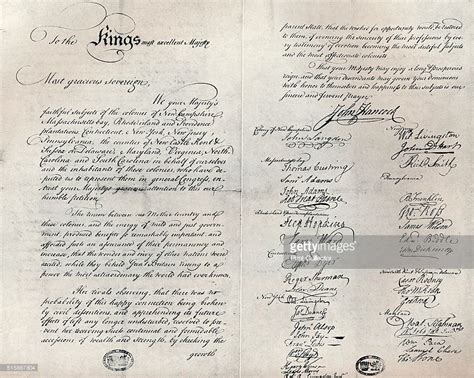 To the Kings most excellent Majesty
Most gracious sovereign,
We your Majesty's
faithful subjects of the colonies of New Hampshire,
Massachusetts bay, Rhode island and Providence
plantations, Connecticut, New York, New Jersey,
Pennsylvania, the counties of New Castle, Kent &
Sussex on Delaware, Maryland, Virginia, North
Carolina and South Carolina in behalf of ourselves
and the inhabitants of these colonies, who have
deputed us to represent them in general Congress, en-
treat your Majesty's gracious attention to this our
humble petition.
The union between our Mother country and
these colonies, and the energy of mild and just govern-
ment, produced benefits so remarkably important, and
afforded such an assurance of their permanency and
increase, that the wonder and envy of other nations were
excited, while they beheld Great Britain rising to a
power the most extraordinary the world had ever known.
Her rivals observing, that there was no
probability of this happy connection being broken
by civil dissentions, and apprehending its future
effects if left any longer undisturbed, resolved to pre-
vent her receiving such continual and formidable
accessions of wealth and strength, by checking the
growth
that your Majesty may enjoy a long & prosperous
reign, and that your descendants may govern your dominions
with honor to themselves and happiness to their subjects is
our sincere and fervent prayer.
John Hancock
John Langdon
Thomas Cushing
Saml Adams
John Adams
Rob Treat Paine
Step Hopkins
Roger Sherman
Silas Deane
Jas Duane
John Alsop
John Jay
Fras Lewis
Wil Livingston
John D Hart
Rich Smith
Pennsylvania
B Franklin
Geo Ross
James Wilson
Edwd Biddle
John Dickinson
Caesar Rodney
Tho M Kean
Maryland
Wm Paca
Samuel Chase
Tho Stone
gettyimages
Print Collector